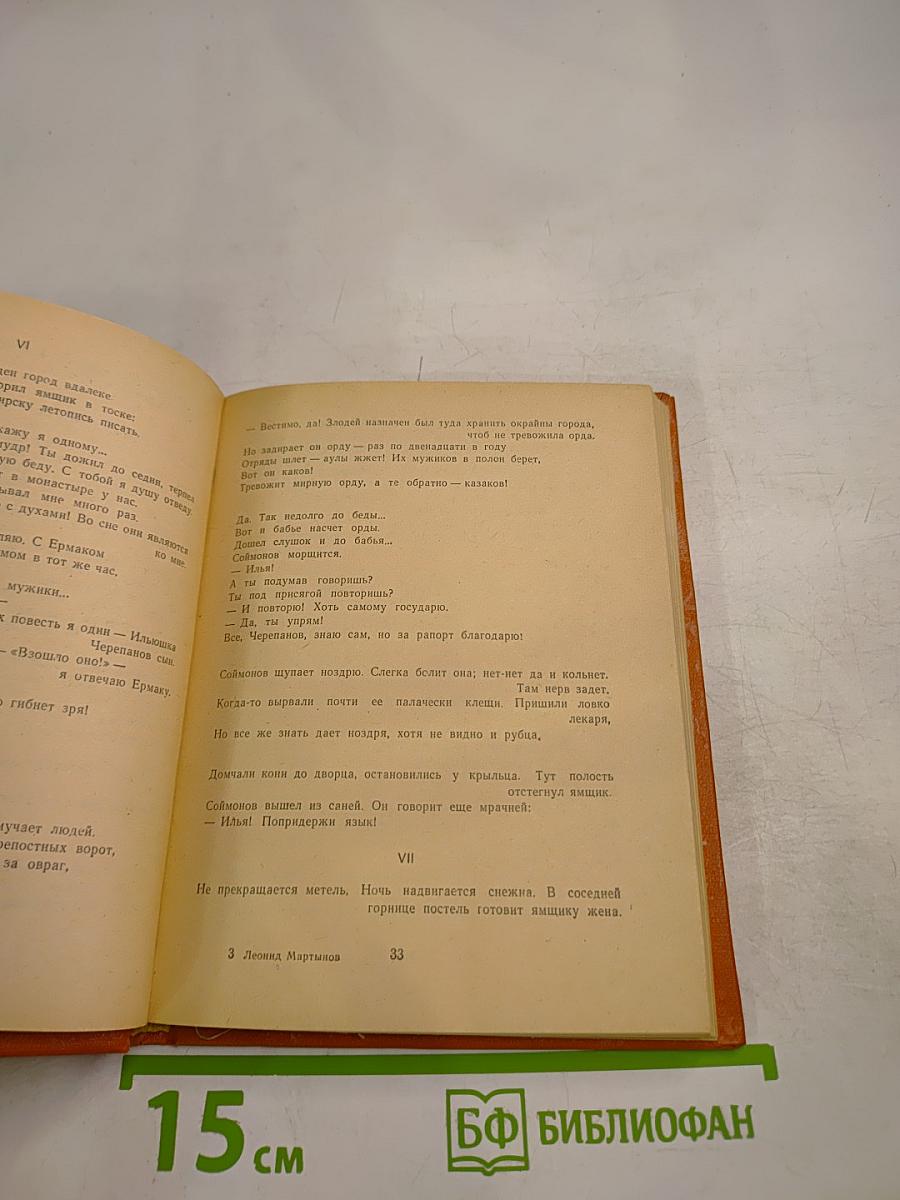 VI
ден город вдалеке.
орил ямщик в тоске:
ирску летопись писать.
кажу я одному...
мудр! Ты дожил до седин, терпел
ую беду. С тобой я душу отведу.
т в монастыре у нас.
ывал мне много раз.
с духами! Во сне они являются
ко мне.
ляю. С Ермаком
мом в тот же час.
мужики...
х повесть я один — Ильюшка
Черепанов сын.
— «Взошло оно!» —
я отвечаю Ермаку.
о гибнет зря!
мучает людей.
репостных ворот,
за овраг,
— Вестимо, да! Злодей назначен был туда хранить окрайны города,
чтоб не тревожила орда.
Но задирает он орду — раз по двенадцати в году
Отряды шлет — аулы жжет! Их мужиков в полон берет,
Вот он каков!
Тревожит мирную орду, а те обратно — казаков!
Да. Так недолго до беды...
Вот и бабье насчет орды.
Дошел слушок и до бабья...
Соймонов морщится.
— Илья!
А ты подумав говоришь?
Ты под присягой повторишь?
— И повторю! Хоть самому государю.
— Да, ты упрям!
Все, Черепанов, знаю сам, но за рапорт благодарю!
Соймонов щупает ноздрю. Слегка болит она; нет-нет да и кольнет.
Там нерв задет.
Когда-то вырвали почти ее палачески клещи. Пришили ловко
лекаря,
Но все же знать дает ноздря, хотя не видно и рубца.
Домчали кони до дворца, остановились у крыльца. Тут полость
отстегнул ямщик.
Соймонов вышел из саней. Он говорит еще мрачней:
— Илья! Попридержи язык!
VII
Не прекращается метель. Ночь надвигается снежна. В соседней
горнице постель готовит ямщику жена.
3 Леонид Мартынов 33
15 см
БФ БИБЛИОФАН